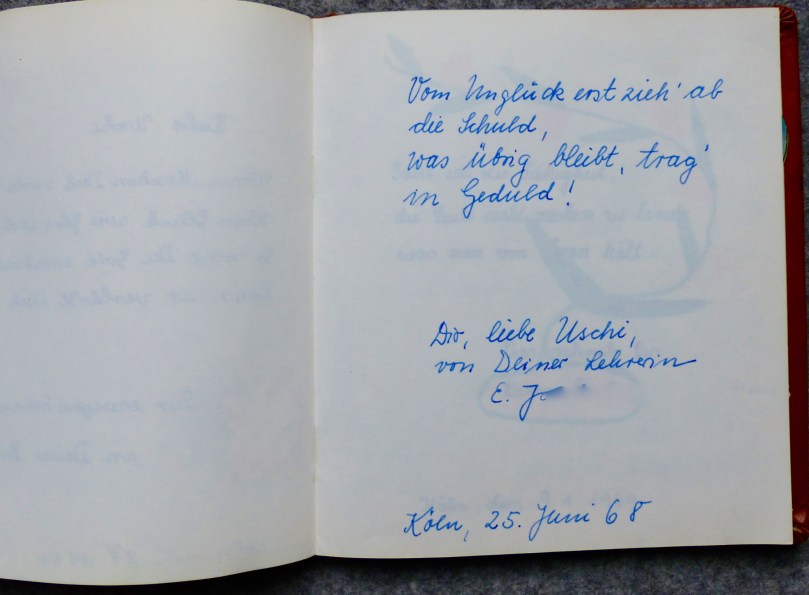 Vom Unglück erst zieh' ab
die Schuld,
was übrig bleibt, trag'
in Geduld!
Dir, liebe Uschi,
von Deiner Lehrerin
E. J.
Köln, 25. Juni 68